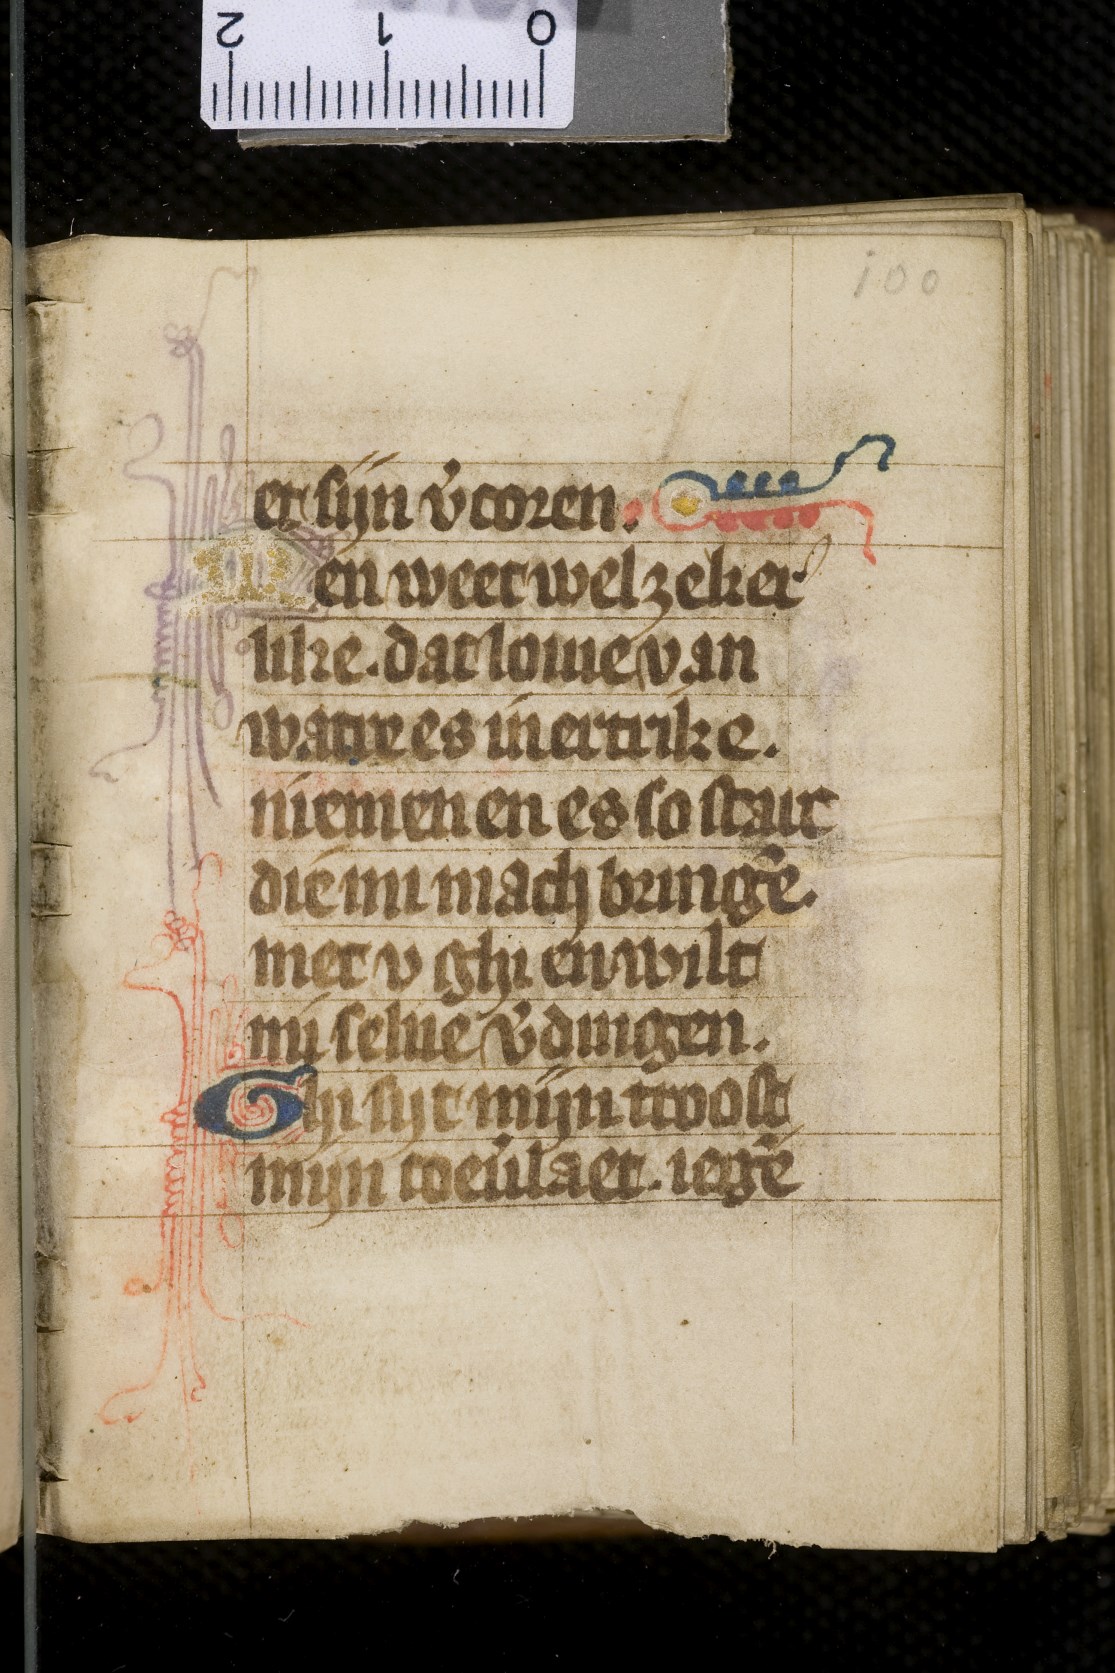 2 1 0
100
et sijn v̕coren.
Men weet wel zeker
like. dat lome van
watre es in ertrike.
niemen en es so starc
die mi mach bringē̕.
met v ghi en wilt
mi selue v̕dingen.
Ghi sijt mijn troost
mijn toeu̕laet. iegē̕